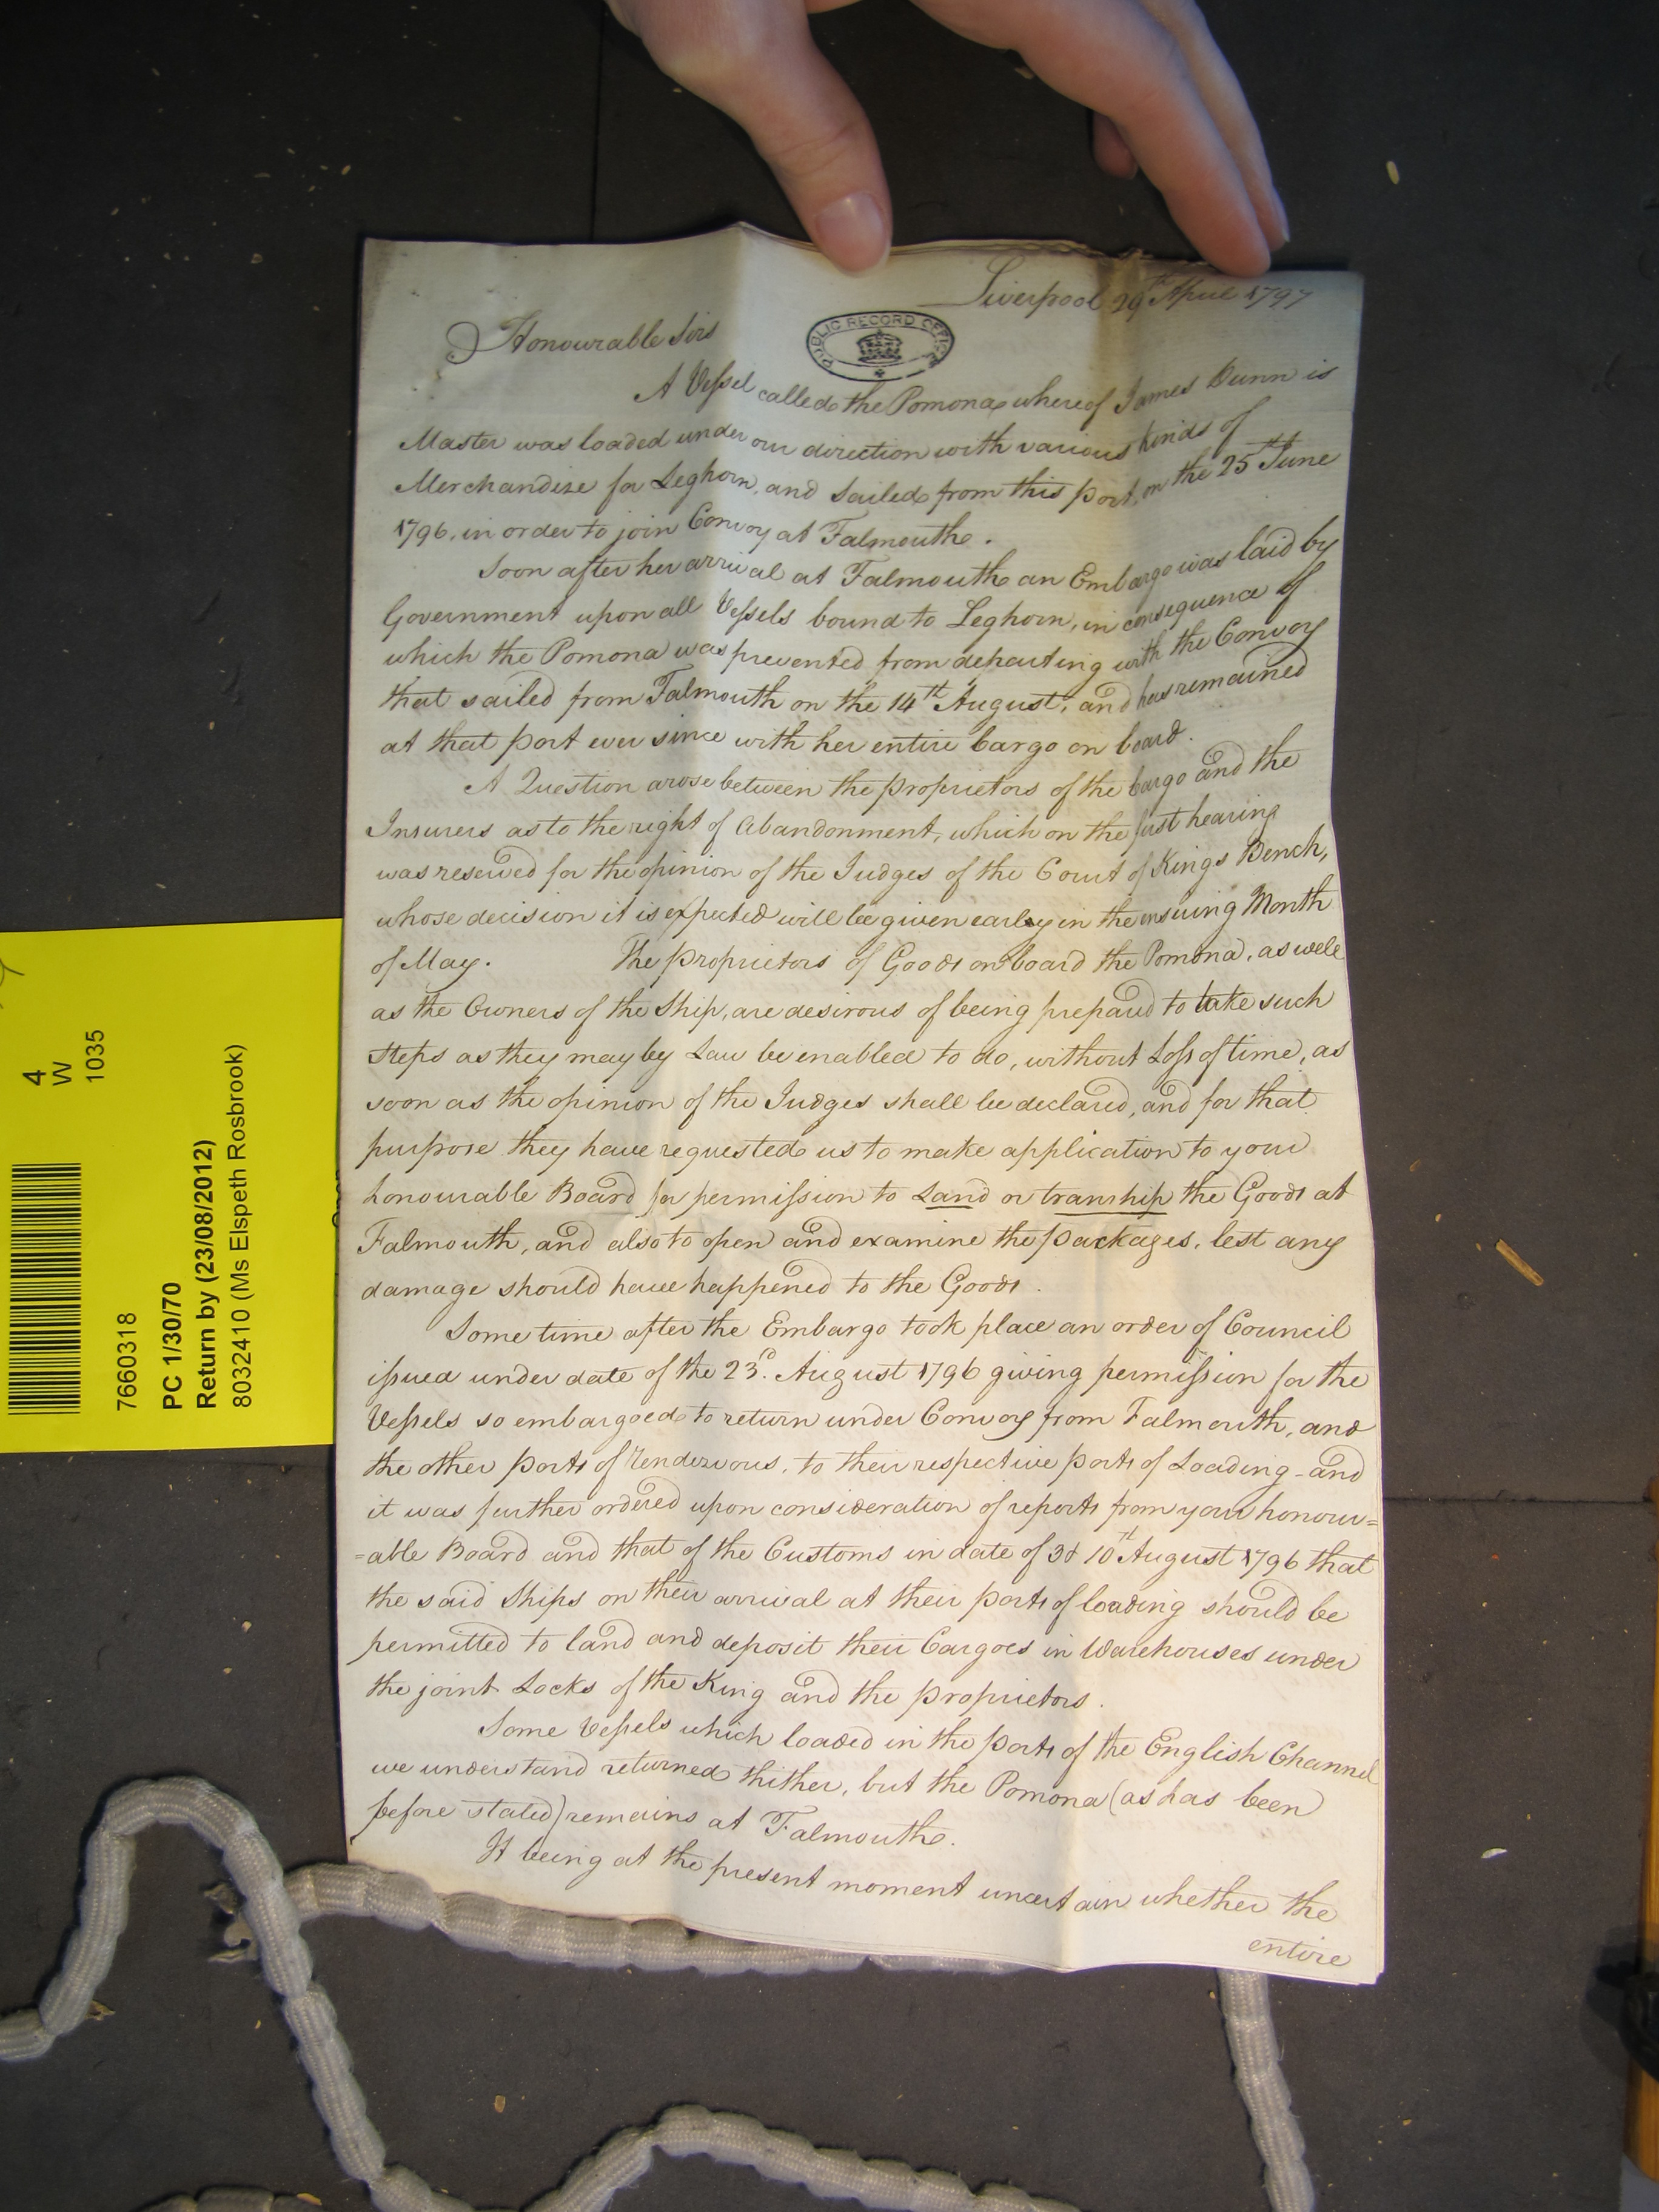 Liverpool 29th April 1797
PUBLIC RECORD OFFICE
Honourable Sirs
A Vessel called the Pomona whereof James Dunn is
Master was loaded under our direction with various kinds of
Merchandize for Leghorn, and sailed from this port, on the 25th June
1796, in order to join Convoy at Falmouth.
Soon after her arrival at Falmouth an Embargo was laid by
Government upon all Vessels bound to Leghorn, in consequence of
which the Pomona was prevented from departing with the Convoy
that sailed from Falmouth on the 14th August, and has remained
at that port ever since with her entire Cargo on board.
A Question arose between the proprietors of the Cargo and the
Insurers as to the right of Abandonment, which on the first hearing
was reserved for the opinion of the Judges of the Court of Kings Bench,
whose decision it is expected will be given early in the ensuing Month
of May. The proprietors of Goods on board the Pomona, as well
as the Owners of the Ship, are desirous of being prepared to take such
steps as they may by Law be enabled to do, without Loss of time, as
soon as the opinion of the Judges shall be declared, and for that
purpose they have requested us to make application to your
honourable Board for permission to Land or tranship the Goods at
Falmouth, and also to open and examine the packages, lest any
damage should have happened to the Goods.
Some time after the Embargo took place an order of Council
issued under date of the 23d. August 1796 giving permission for the
Vessels so embargoed to return under Convoy from Falmouth, and
the other ports of rendezvous, to their respective ports of Loading - and
it was further ordered upon consideration of reports from your honour=
=able Board and that of the Customs in date of 3d 10th August 1796 that
the said Ships on their arrival at their ports of loading should be
permitted to land and deposit their Cargoes in Warehouses under
the joint Locks of the King and the proprietors.
Some Vessels which loaded in the ports of the English Channel
we understand returned thither, but the Pomona (as has been
before stated) remains at Falmouth.
It being at the present moment uncertain whether the
entire
4
W
1035
7660318
PC 1/30/70
Return by (23/08/2012)
8032410 (Ms Elspeth Rosbrook)